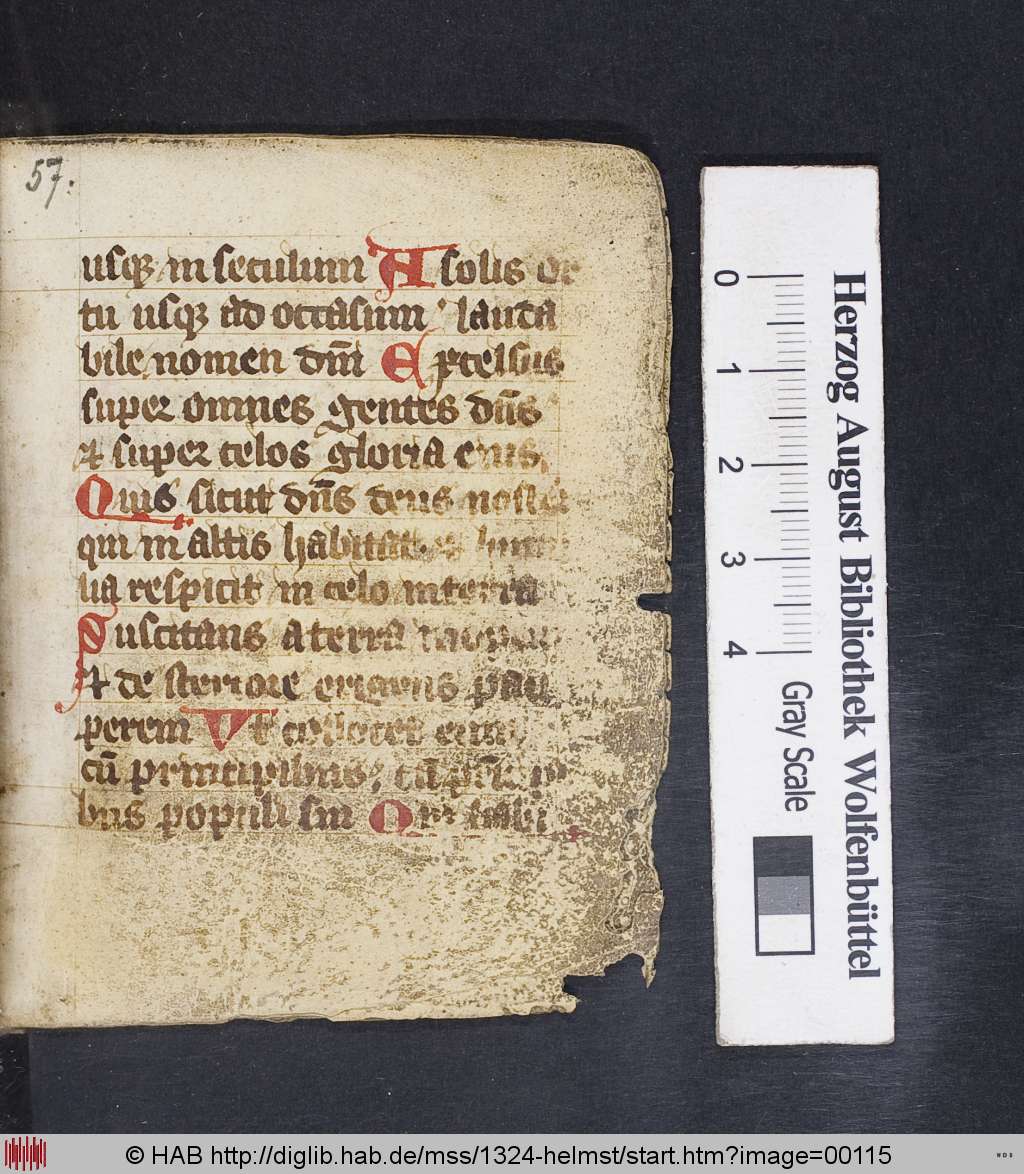 57.
usq3 in seculum A solis or
tu usq3 ad occasum lauda
bile nomen dn̄i Excelsus
super omnes gentes dn̄s
et super celos gloria eius
Quis sicut dn̄s deus noster
qui in altis habitat et humi
lia respicit in celo in terra
Suscitans a terra inopem
et de stercore erigens pau
perem Ut collocet eum
cū principibus cū
bus populi sui Qui
0
1
2
3
4
Gray Scale
Herzog August Bibliothek Wolfenbüttel
© HAB http://diglib.hab.de/mss/1324-helmst/start.htm?image=00115
WDB